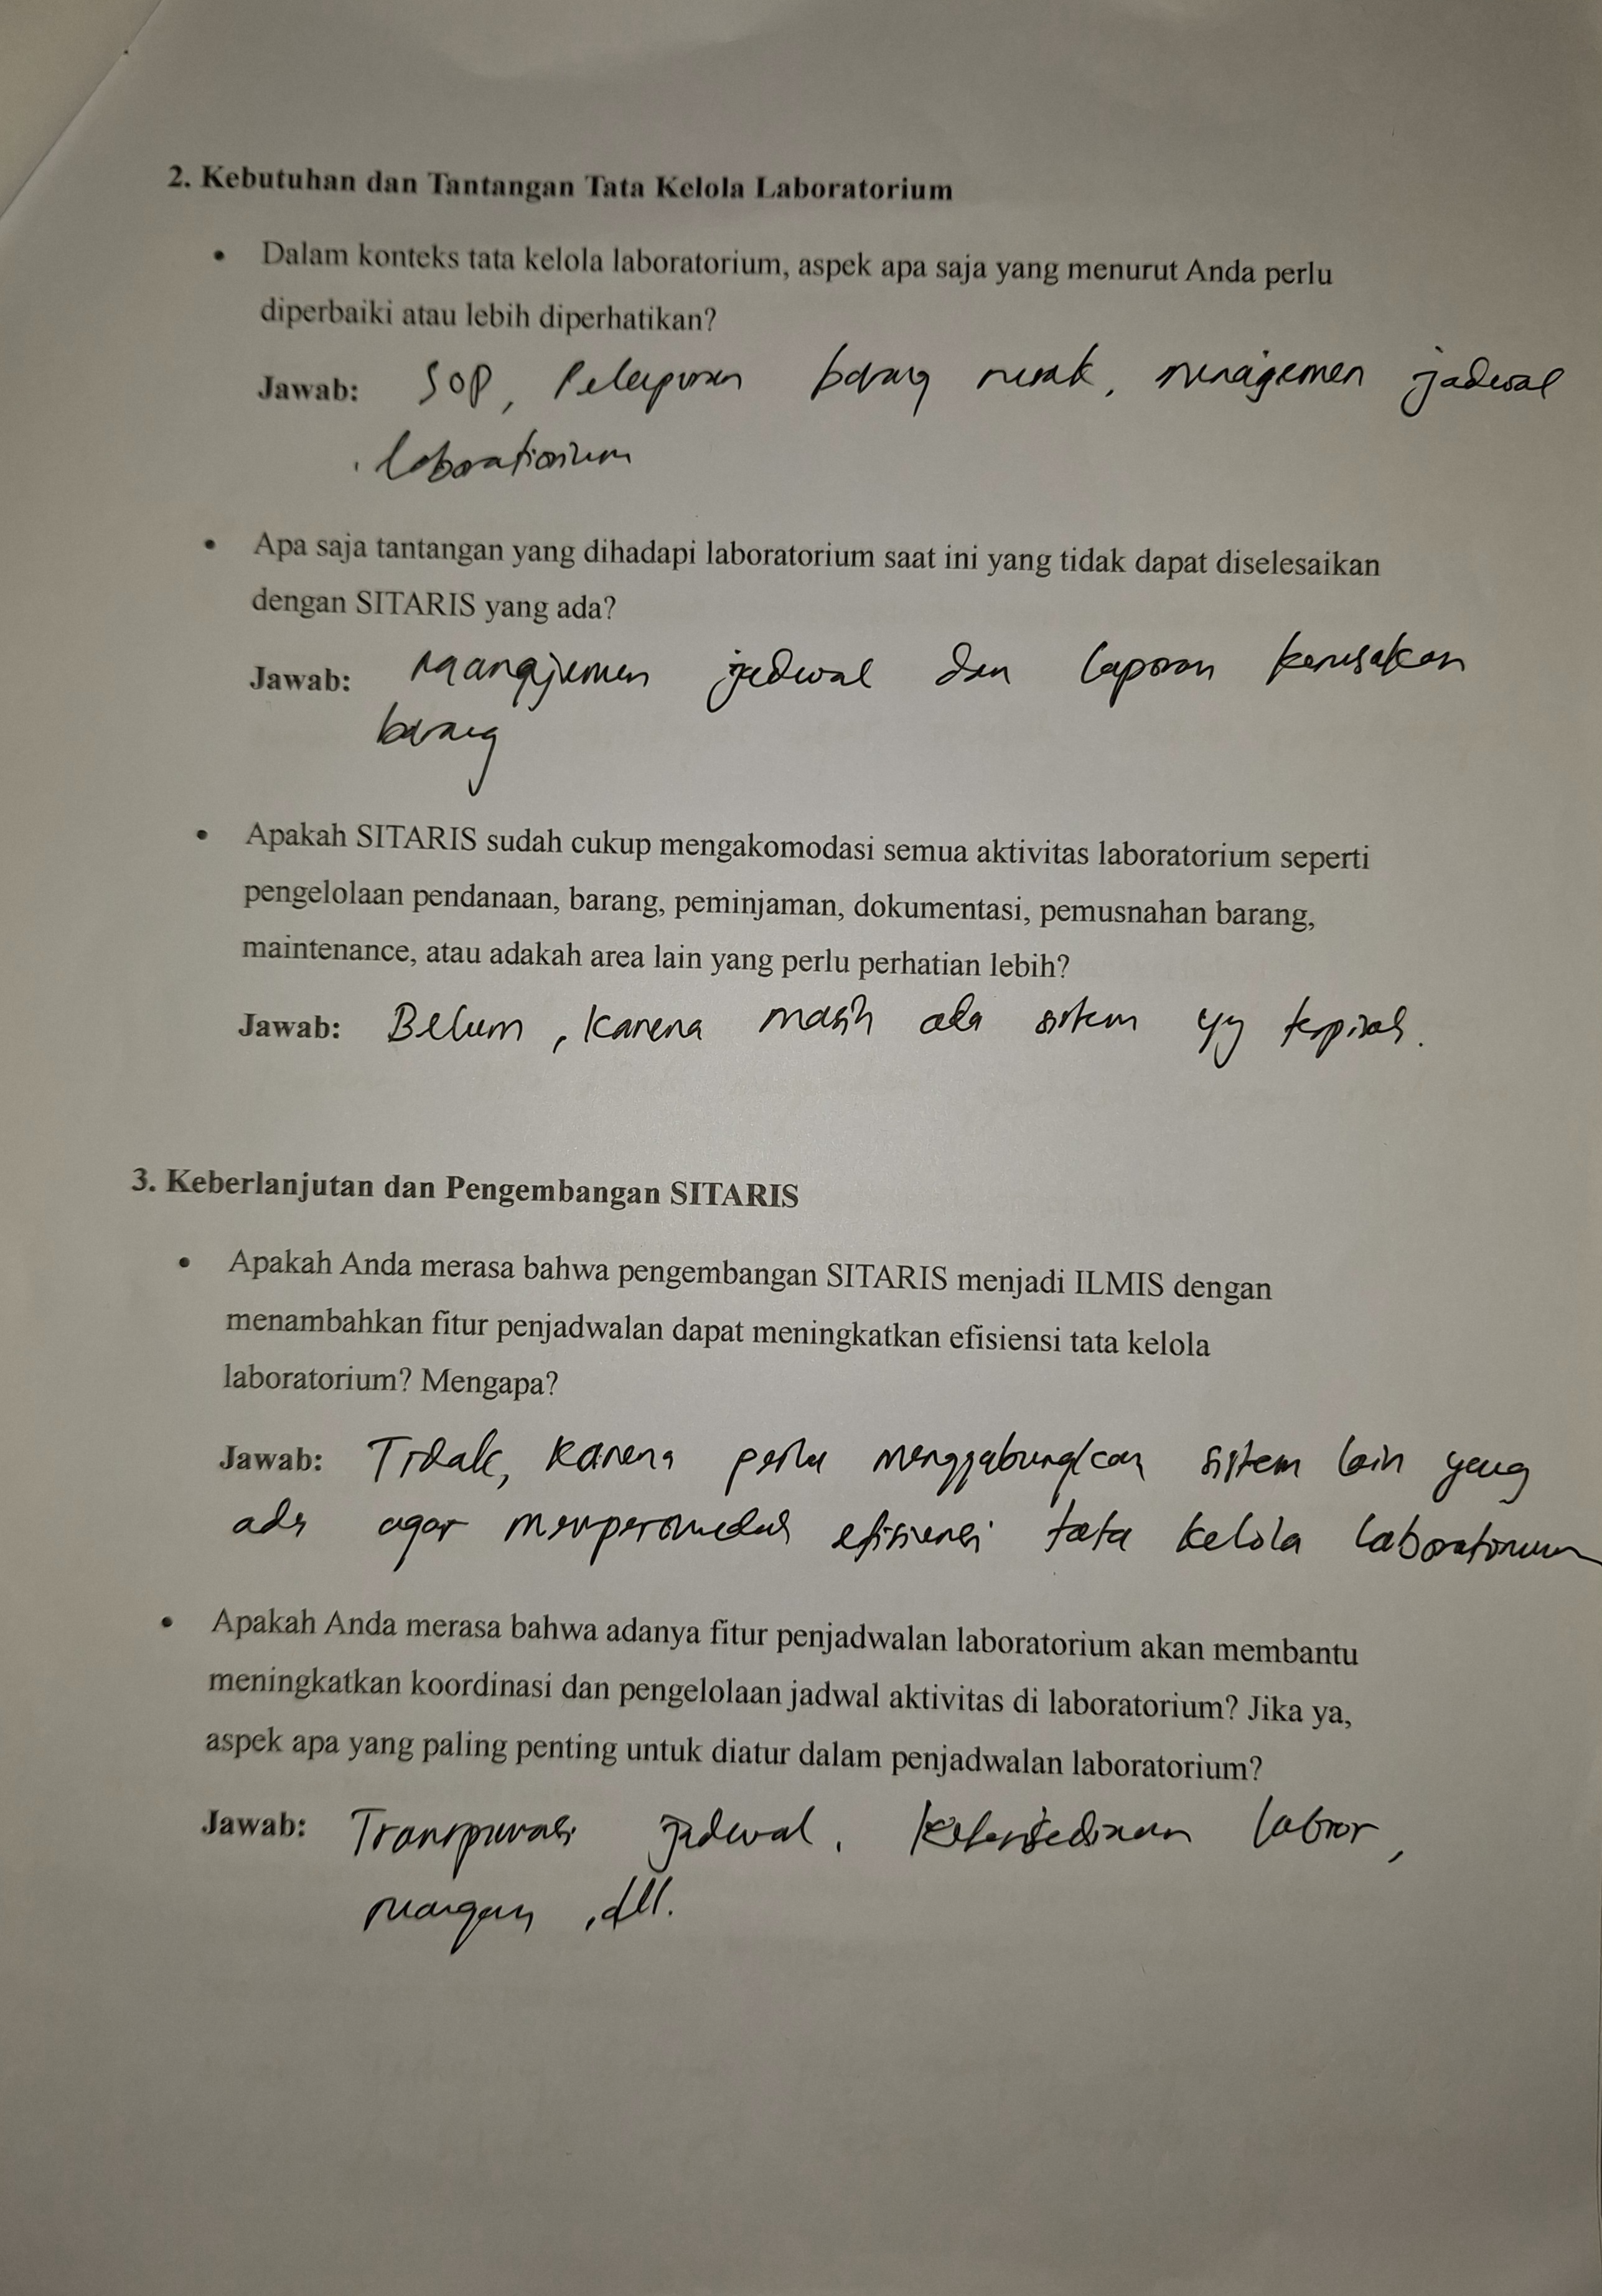 2. Kebutuhan dan Tantangan Tata Kelola Laboratorium
• Dalam konteks tata kelola laboratorium, aspek apa saja yang menurut Anda perlu
diperbaiki atau lebih diperhatikan?
Jawab: SOP, Pelaporan barang rusak, menagemen jadwal
laboratiorium
• Apa saja tantangan yang dihadapi laboratorium saat ini yang tidak dapat diselesaikan
dengan SITARIS yang ada?
Jawab: Manajemen jadwal dan laporan kerusakan
barang
• Apakah SITARIS sudah cukup mengakomodasi semua aktivitas laboratorium seperti
pengelolaan pendanaan, barang, peminjaman, dokumentasi, pemusnahan barang,
maintenance, atau adakah area lain yang perlu perhatian lebih?
Jawab: Belum, karena masih ada sistem yg terpisah.
3. Keberlanjutan dan Pengembangan SITARIS
• Apakah Anda merasa bahwa pengembangan SITARIS menjadi ILMIS dengan
menambahkan fitur penjadwalan dapat meningkatkan efisiensi tata kelola
laboratorium? Mengapa?
Jawab: Tidak, karena perlu menggabungkan sistem lain yang
ada agar mempermudah efisiensi tata kelola laboratorium
• Apakah Anda merasa bahwa adanya fitur penjadwalan laboratorium akan membantu
meningkatkan koordinasi dan pengelolaan jadwal aktivitas di laboratorium? Jika ya,
aspek apa yang paling penting untuk diatur dalam penjadwalan laboratorium?
Jawab: Transparansi jadwal, Ketersediaan labor,
ruangan, dll.